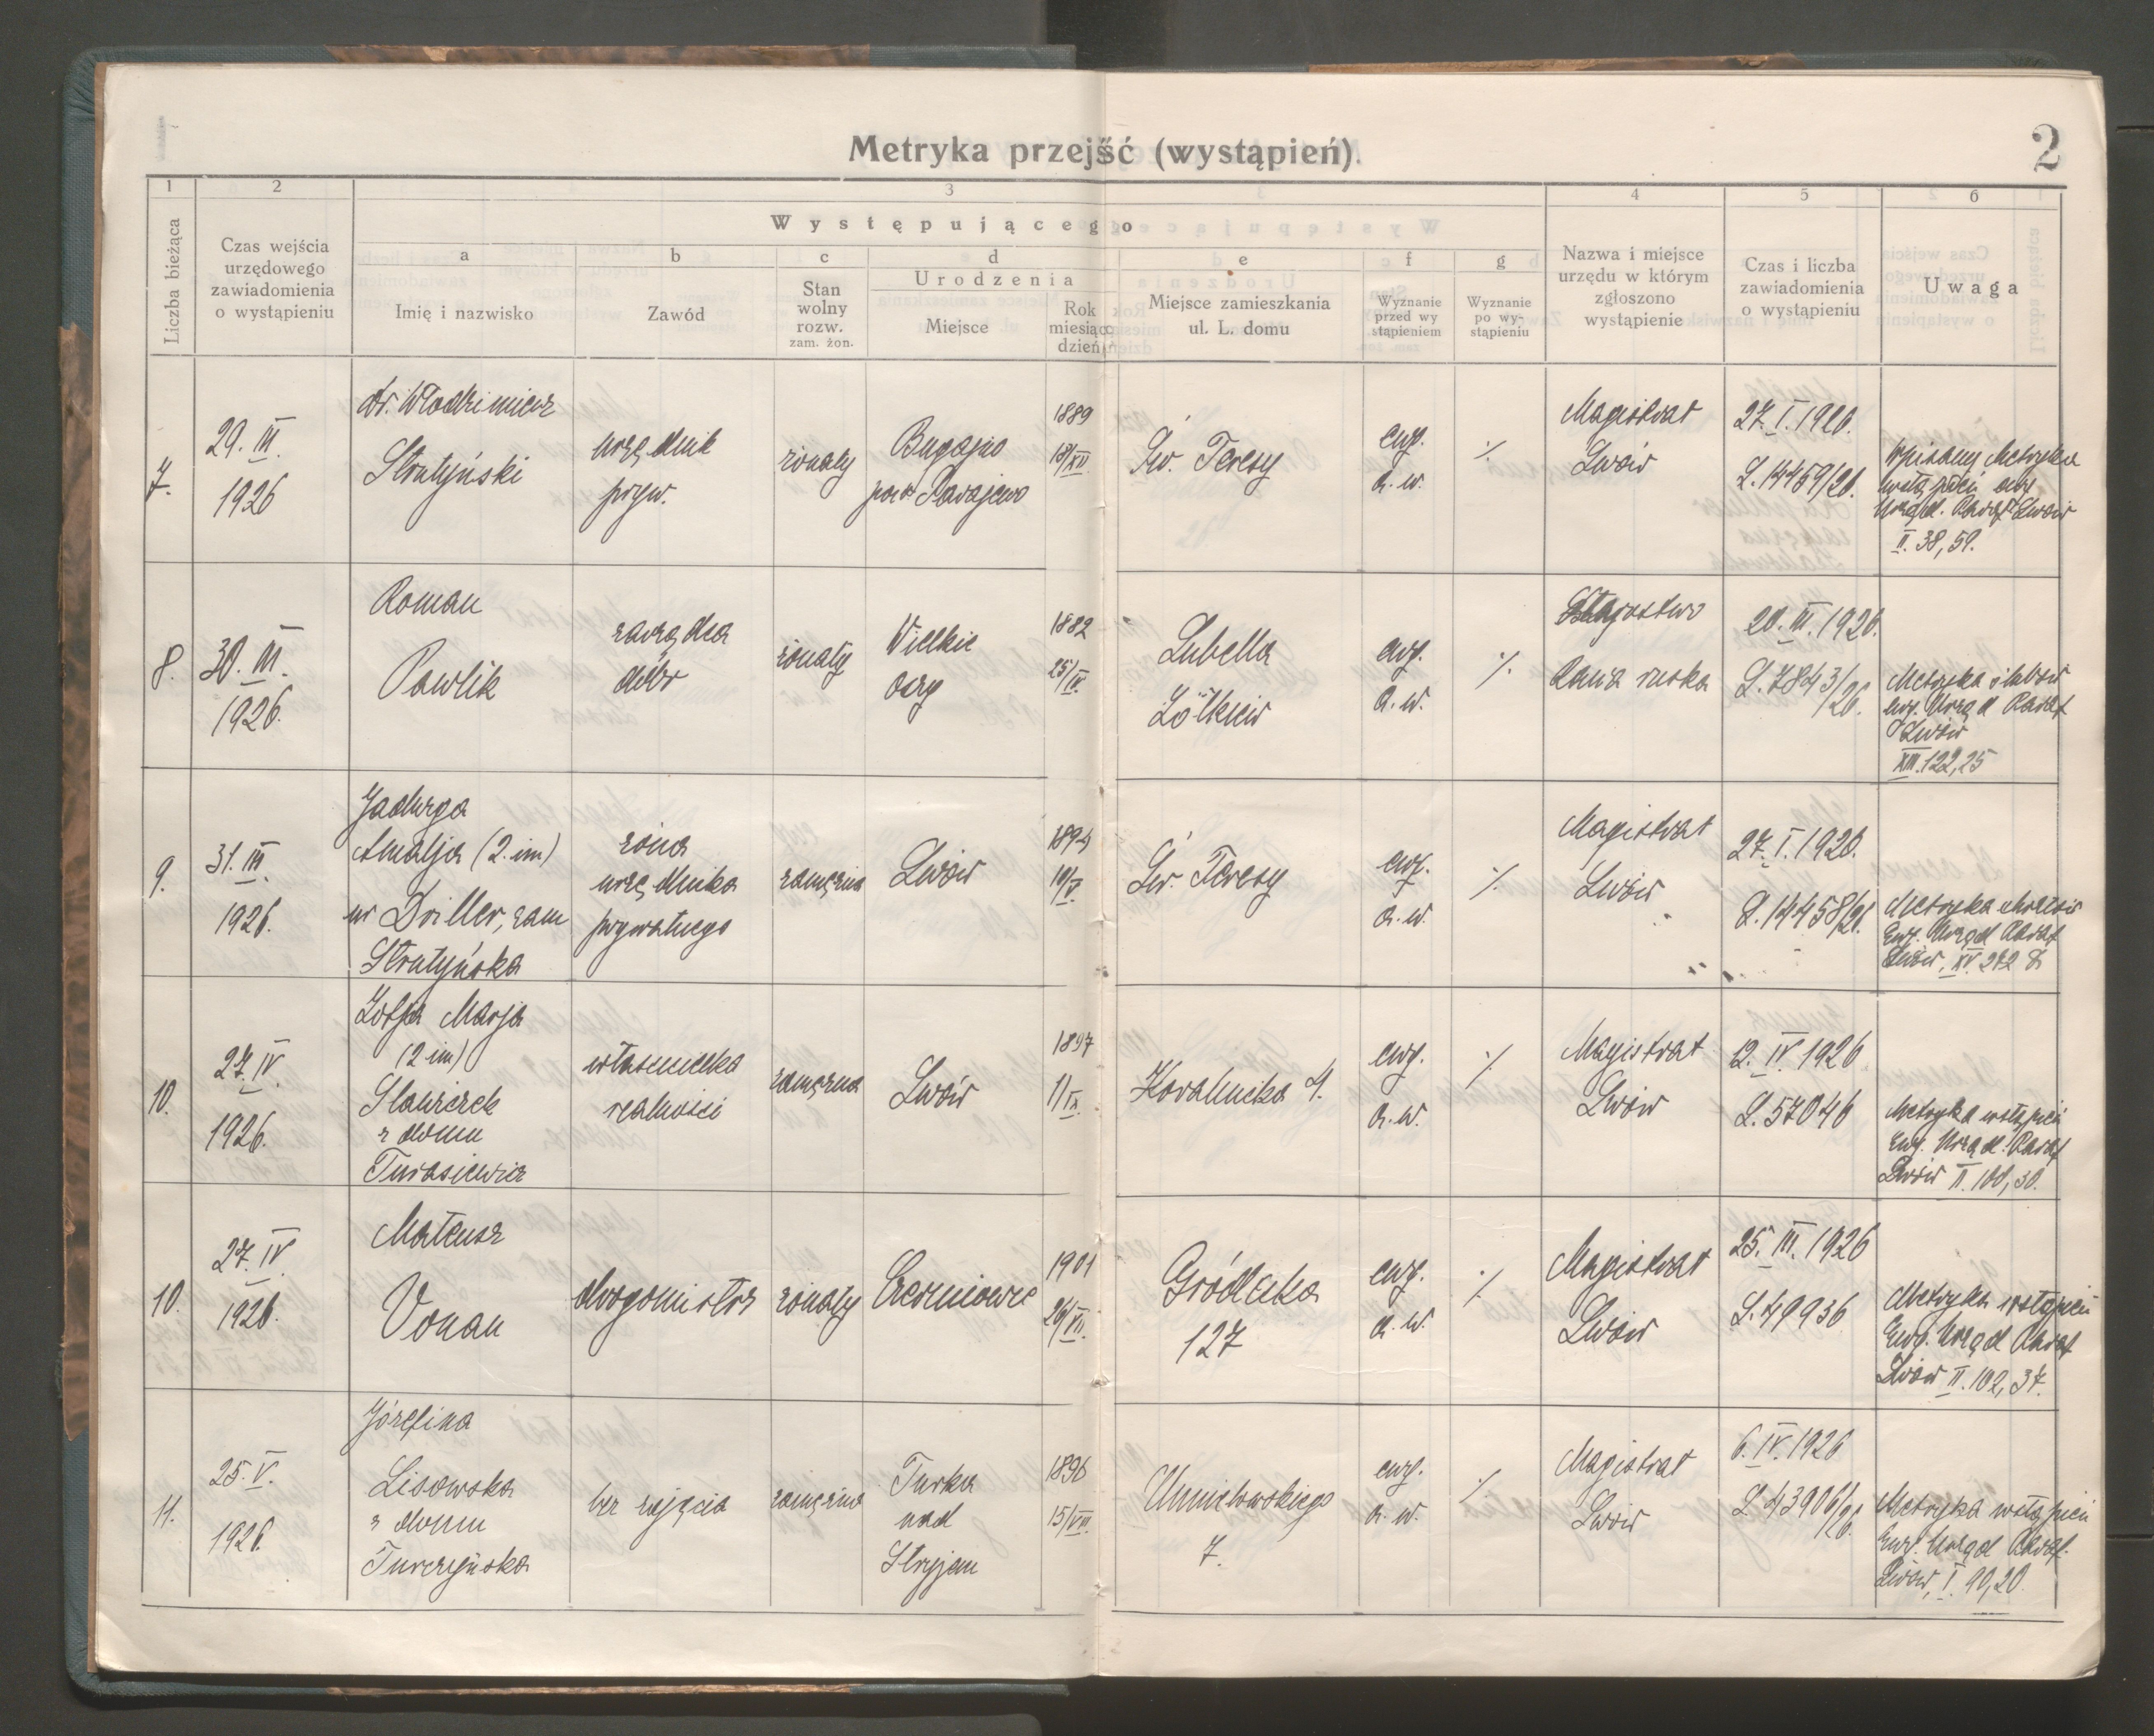 Metryka przejść (wystąpień).
2
1
2
3
4
5
6
Liczba bieżąca
Czas wejścia
urzędowego
zawiadomienia
o wystąpieniu
Występującego
a
Imię i nazwisko
b
Zawód
c
Stan
wolny
rozw.
zam. żon.
d
Urodzenia
Miejsce
Rok
miesiąc
dzień
e
Miejsce zamieszkania
ul. L. domu
f
Wyznanie
przed wy
stąpieniem
g
Wyznanie
po wy-
stąpieniu
Nazwa i miejsce
urzędu w którym
zgłoszono
wystąpienie
Czas i liczba
zawiadomienia
o wystąpieniu
Uwaga
7.
29. III.
1926
dr. Włodzimierz
Strutyński
urzędnik
pryw.
żonaty
1889
18/XII
Św. Teresy
ewg.
a. w.
%
Magistrat
Lwów
27. I. 1926.
L. 14459/26.
Wpisany Metryka
Lwów
II. 38, 59.
8.
30. III.
1926.
Roman
Pawlik
zarządca
dóbr
żonaty
Wielkie
oczy
1882
25/IV.
Lubella
Żółkiew
ewg.
a. w.
%
Starostwo
Rawa ruska
20. III. 1926.
L. 7843/26.
Metryka ślubów
ewg. Urząd Paraf
Lwów
XIII. 122, 25
9.
31. III.
1926.
Jadwiga
Amalja (2. im)
ur Driller, zam
Strutyńska
żona
urzędnika
prywatnego
zamężna
Lwów
1894
10/V.
Św. Teresy
ewg.
a. w.
%
Magistrat
Lwów
27. I. 1926.
L. 14458/26.
Metryka chrztów
Ewg. Urząd Paraf
Lwów, XV. 272
10.
27. IV.
1926.
Zofja Marja
(2 im)
Slawiczek
z domu
Turasiewicz
właścicielka
realności
zamężna
Lwów
1897
1/IX.
4.
ewg.
a. w.
%
Magistrat
Lwów
12. IV 1926
L. 57046
Metryka wstąpień
Ewg. Urząd. Paraf
Lwów II. 100, 30.
10.
27. IV.
1926.
Mateusz
Vonau
drogomistrz
żonaty
Czerniowce
1901
26/VII.
Gródecka
127
ewg.
a. w.
%
Magistrat
Lwów
25. III. 1926
L. 49936
Metryka wstąpień
Ewg. Urząd Paraf
Lwów II. 102, 37.
11.
25. V.
1926.
Józefina
Lisowska
z domu
Turczyńska
bez zajęcia
zamężna
Turka
nad
Stryjem
1896
15/VIII.
7.
ewg.
a. w.
%
Magistrat
Lwów
6. IV. 1926
L 43906/26.
Metryka wstąpień
Ewg. Urząd Paraf.
Lwów, I. 90, 20.